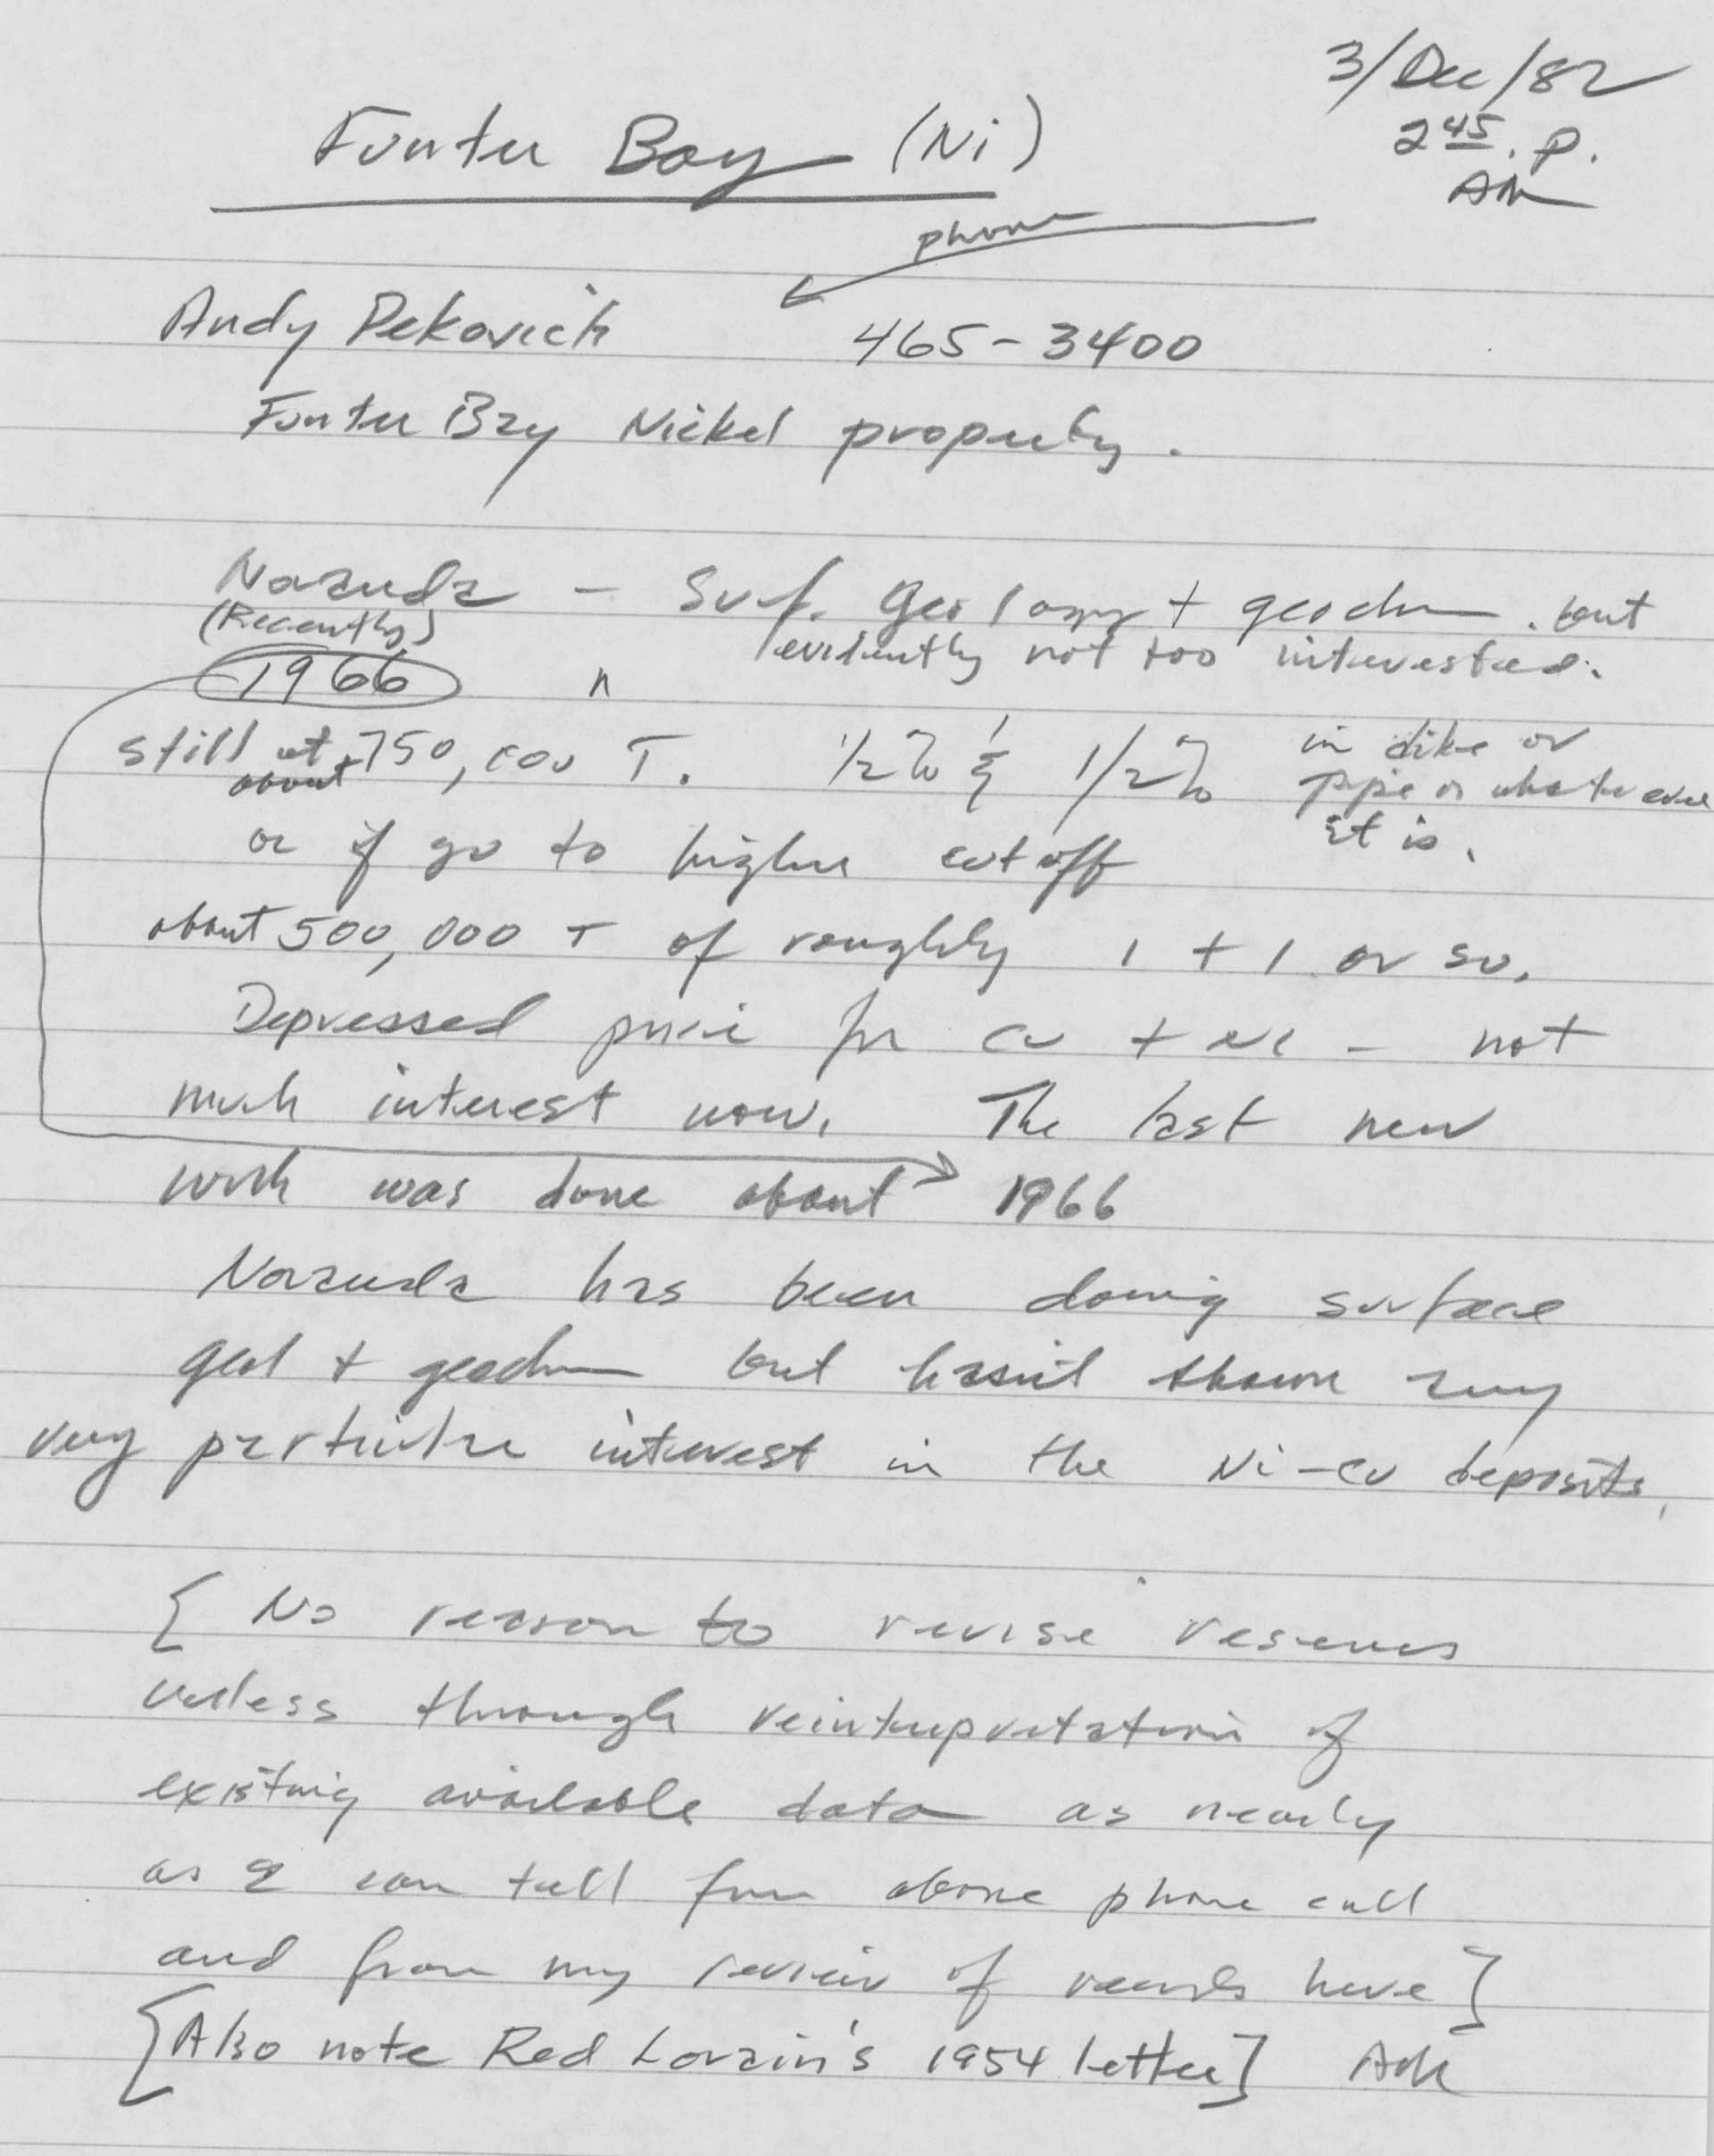 3/Dec/82
2 45 . p.
Funter Bay (Ni)
phone
Andy Pekovich 465-3400
Funter Bay Nickel property.
Noranda - Surf. Geology + geochem. but
(Recently) evidently not too interested.
1966 "
still at about 750,000 T. 1/2% & 1/2% in dike or
pipe or whatever
it is.
or if go to higher cutoff
about 500,000 T of roughly 1 + 1 or so.
Depressed price for Cu + Ni - not
much interest now. The last new
work was done about 1966
Noranda has been doing surface
geol + geochem but hasn't shown any
very particular interest in the Ni-Cu deposits.
[ No reason to revise reserves
unless through reinterpretation of
existing available data as nearly
as I can tell from above phone call
and from my review of records here ]
[Also note Red Lorain's 1954 letter]